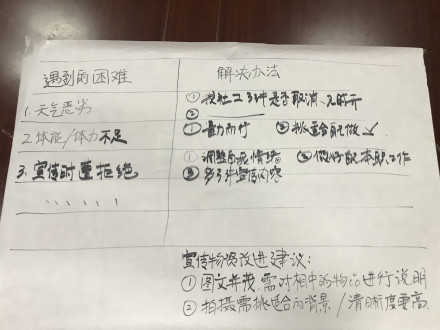 遇到的困难
解决办法
1.天气恶劣
①找社工了解是否取消
②
2.体能/体力不足
①量力而行 ②挑适合自己做 ✓
3.宣传时遭拒绝
①调整自己情绪 ③做好自己本职工作
②多了解宣传内容
、、、、、、
宣传物资改进建议:
①图文并茂,需对相中的物品进行说明
②拍摄需挑适合的背景/清晰度要高